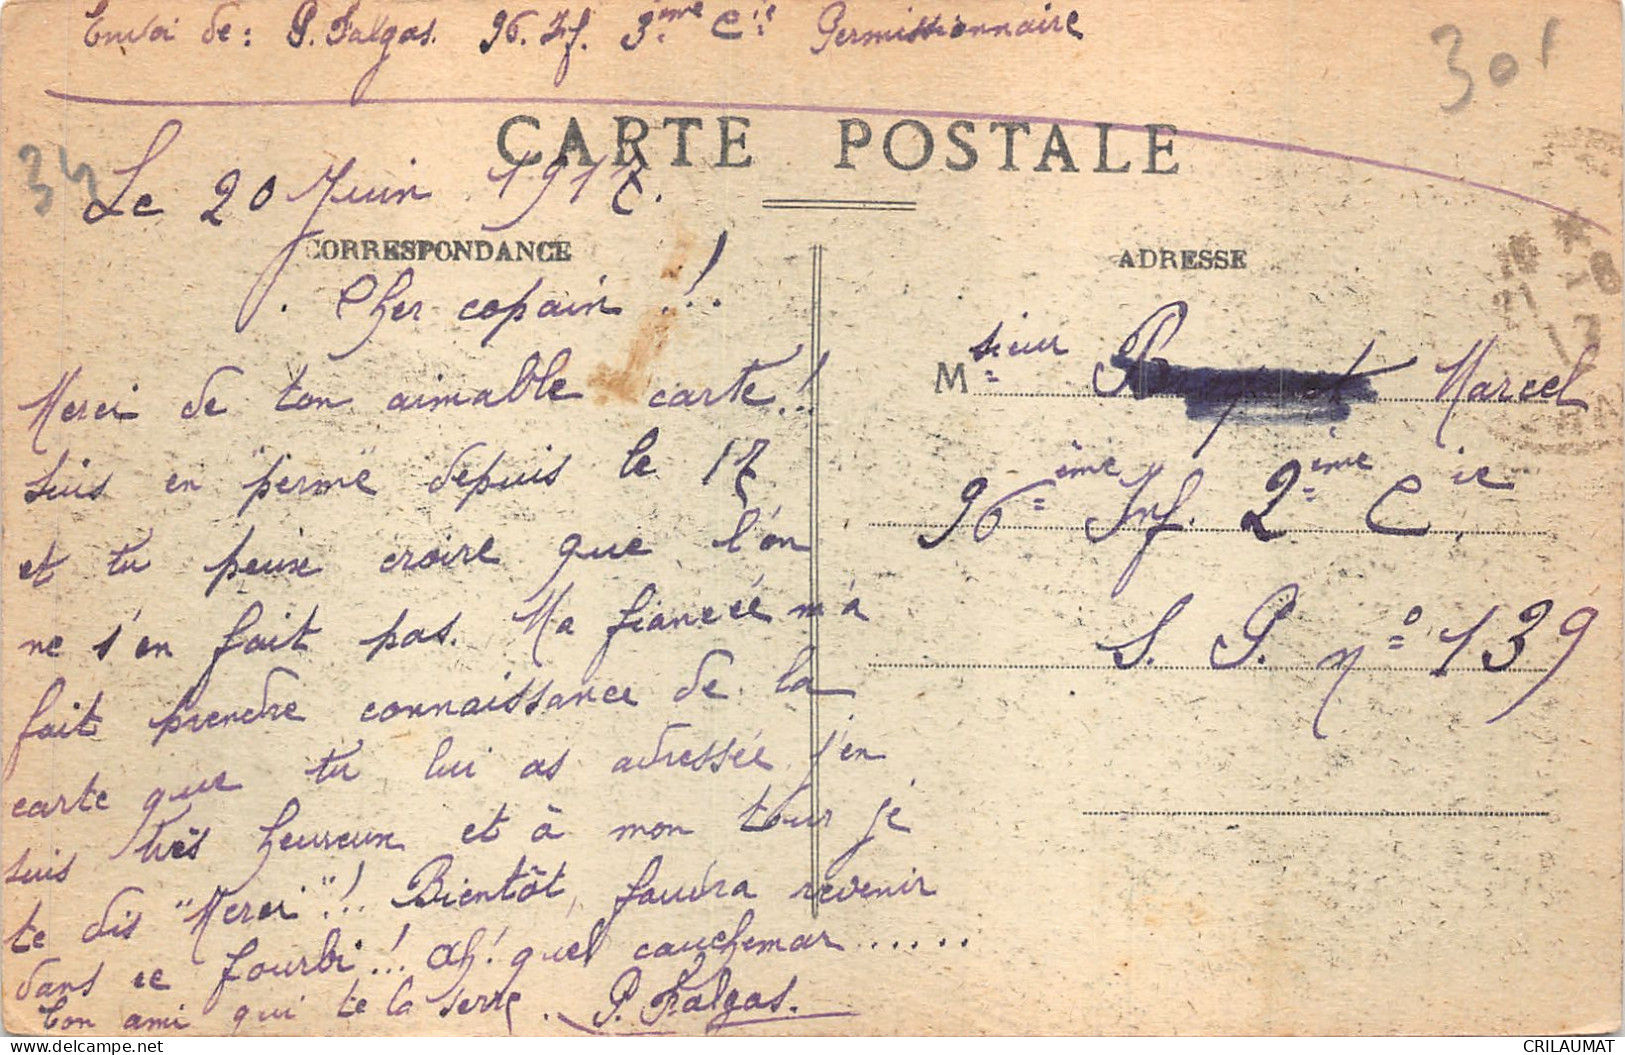 Envoi de : P. Falgas. 96. Inf. 3ème Cie Permissionnaire
301
34
CARTE POSTALE
Le 20 Juin 1917.
CORRESPONDANCE
Cher copain !..
Merci de ton aimable carte !.
suis en "perme" depuis le 17
et tu peux croire que l'on
ne s'en fait pas. Ma fiancée m'a
fait prendre connaissance de la
carte que tu lui as adressée j'en
suis très heureux et à mon tour je
te dis "Merci" !.. Bientôt, faudra revenir
dans ce fourbi !.. Ah ! quel cauchemar ......
Ton ami qui te la serre. P. Falgas.
ADRESSE
Msieur Marcel
96ème Inf. 2ème Cie.
S. P. n° 139
CRILAUMAT